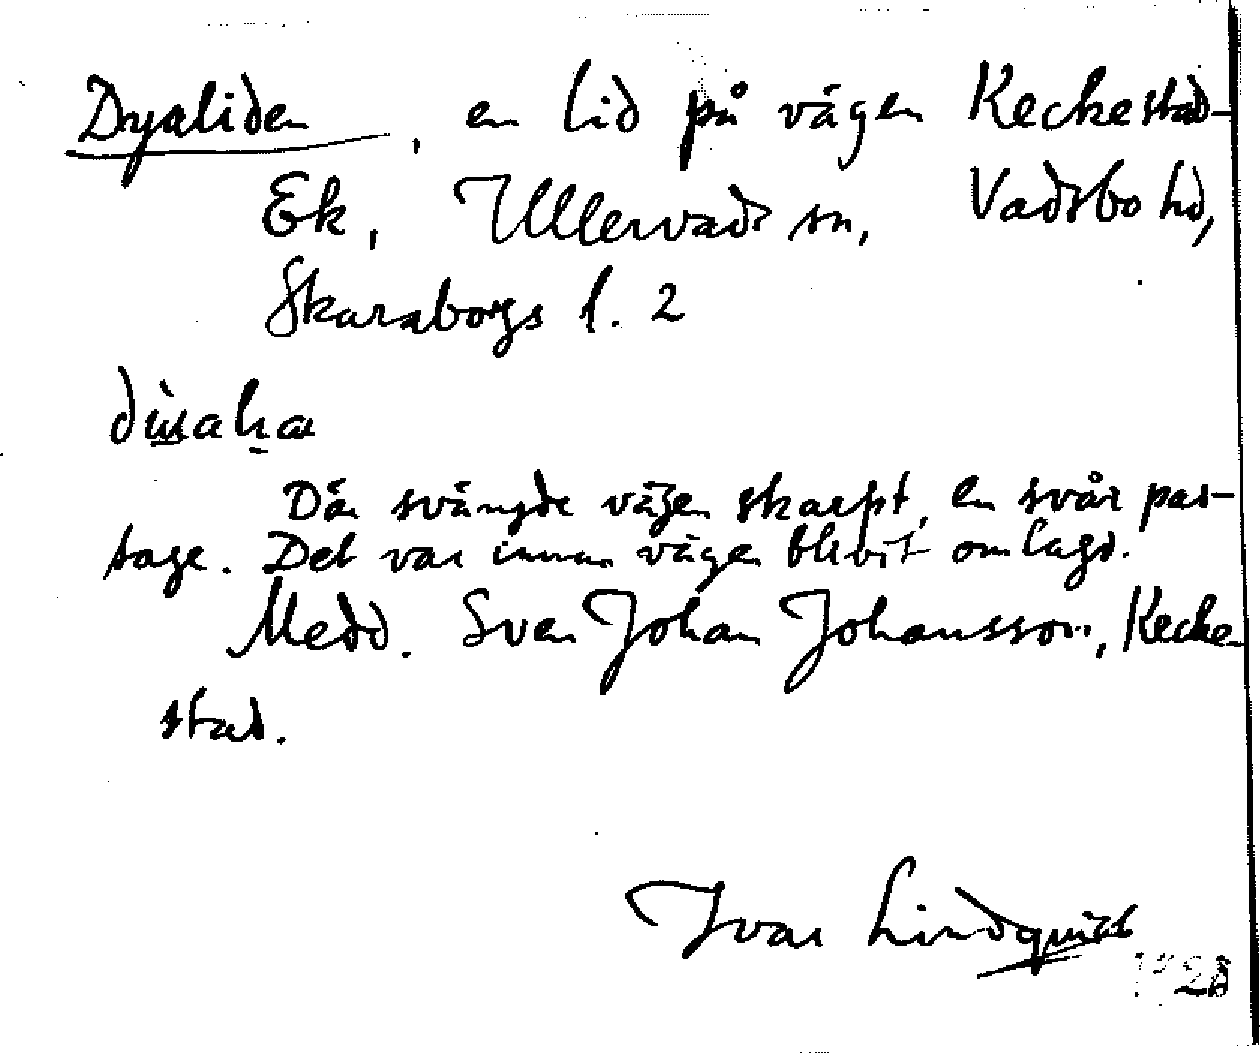 Dyaliden, en lid på vägen Keckestad-
Ek, Ullervads sn, Vadsbo hd,
Skaraborgs l. 2
Där svängde vägen skarpt, en svår pas-
sage. Det var innan vägen blivit omlagd.
Medd. Sven Johan Johansson, Kecke
stad.
Ivar Lindquist